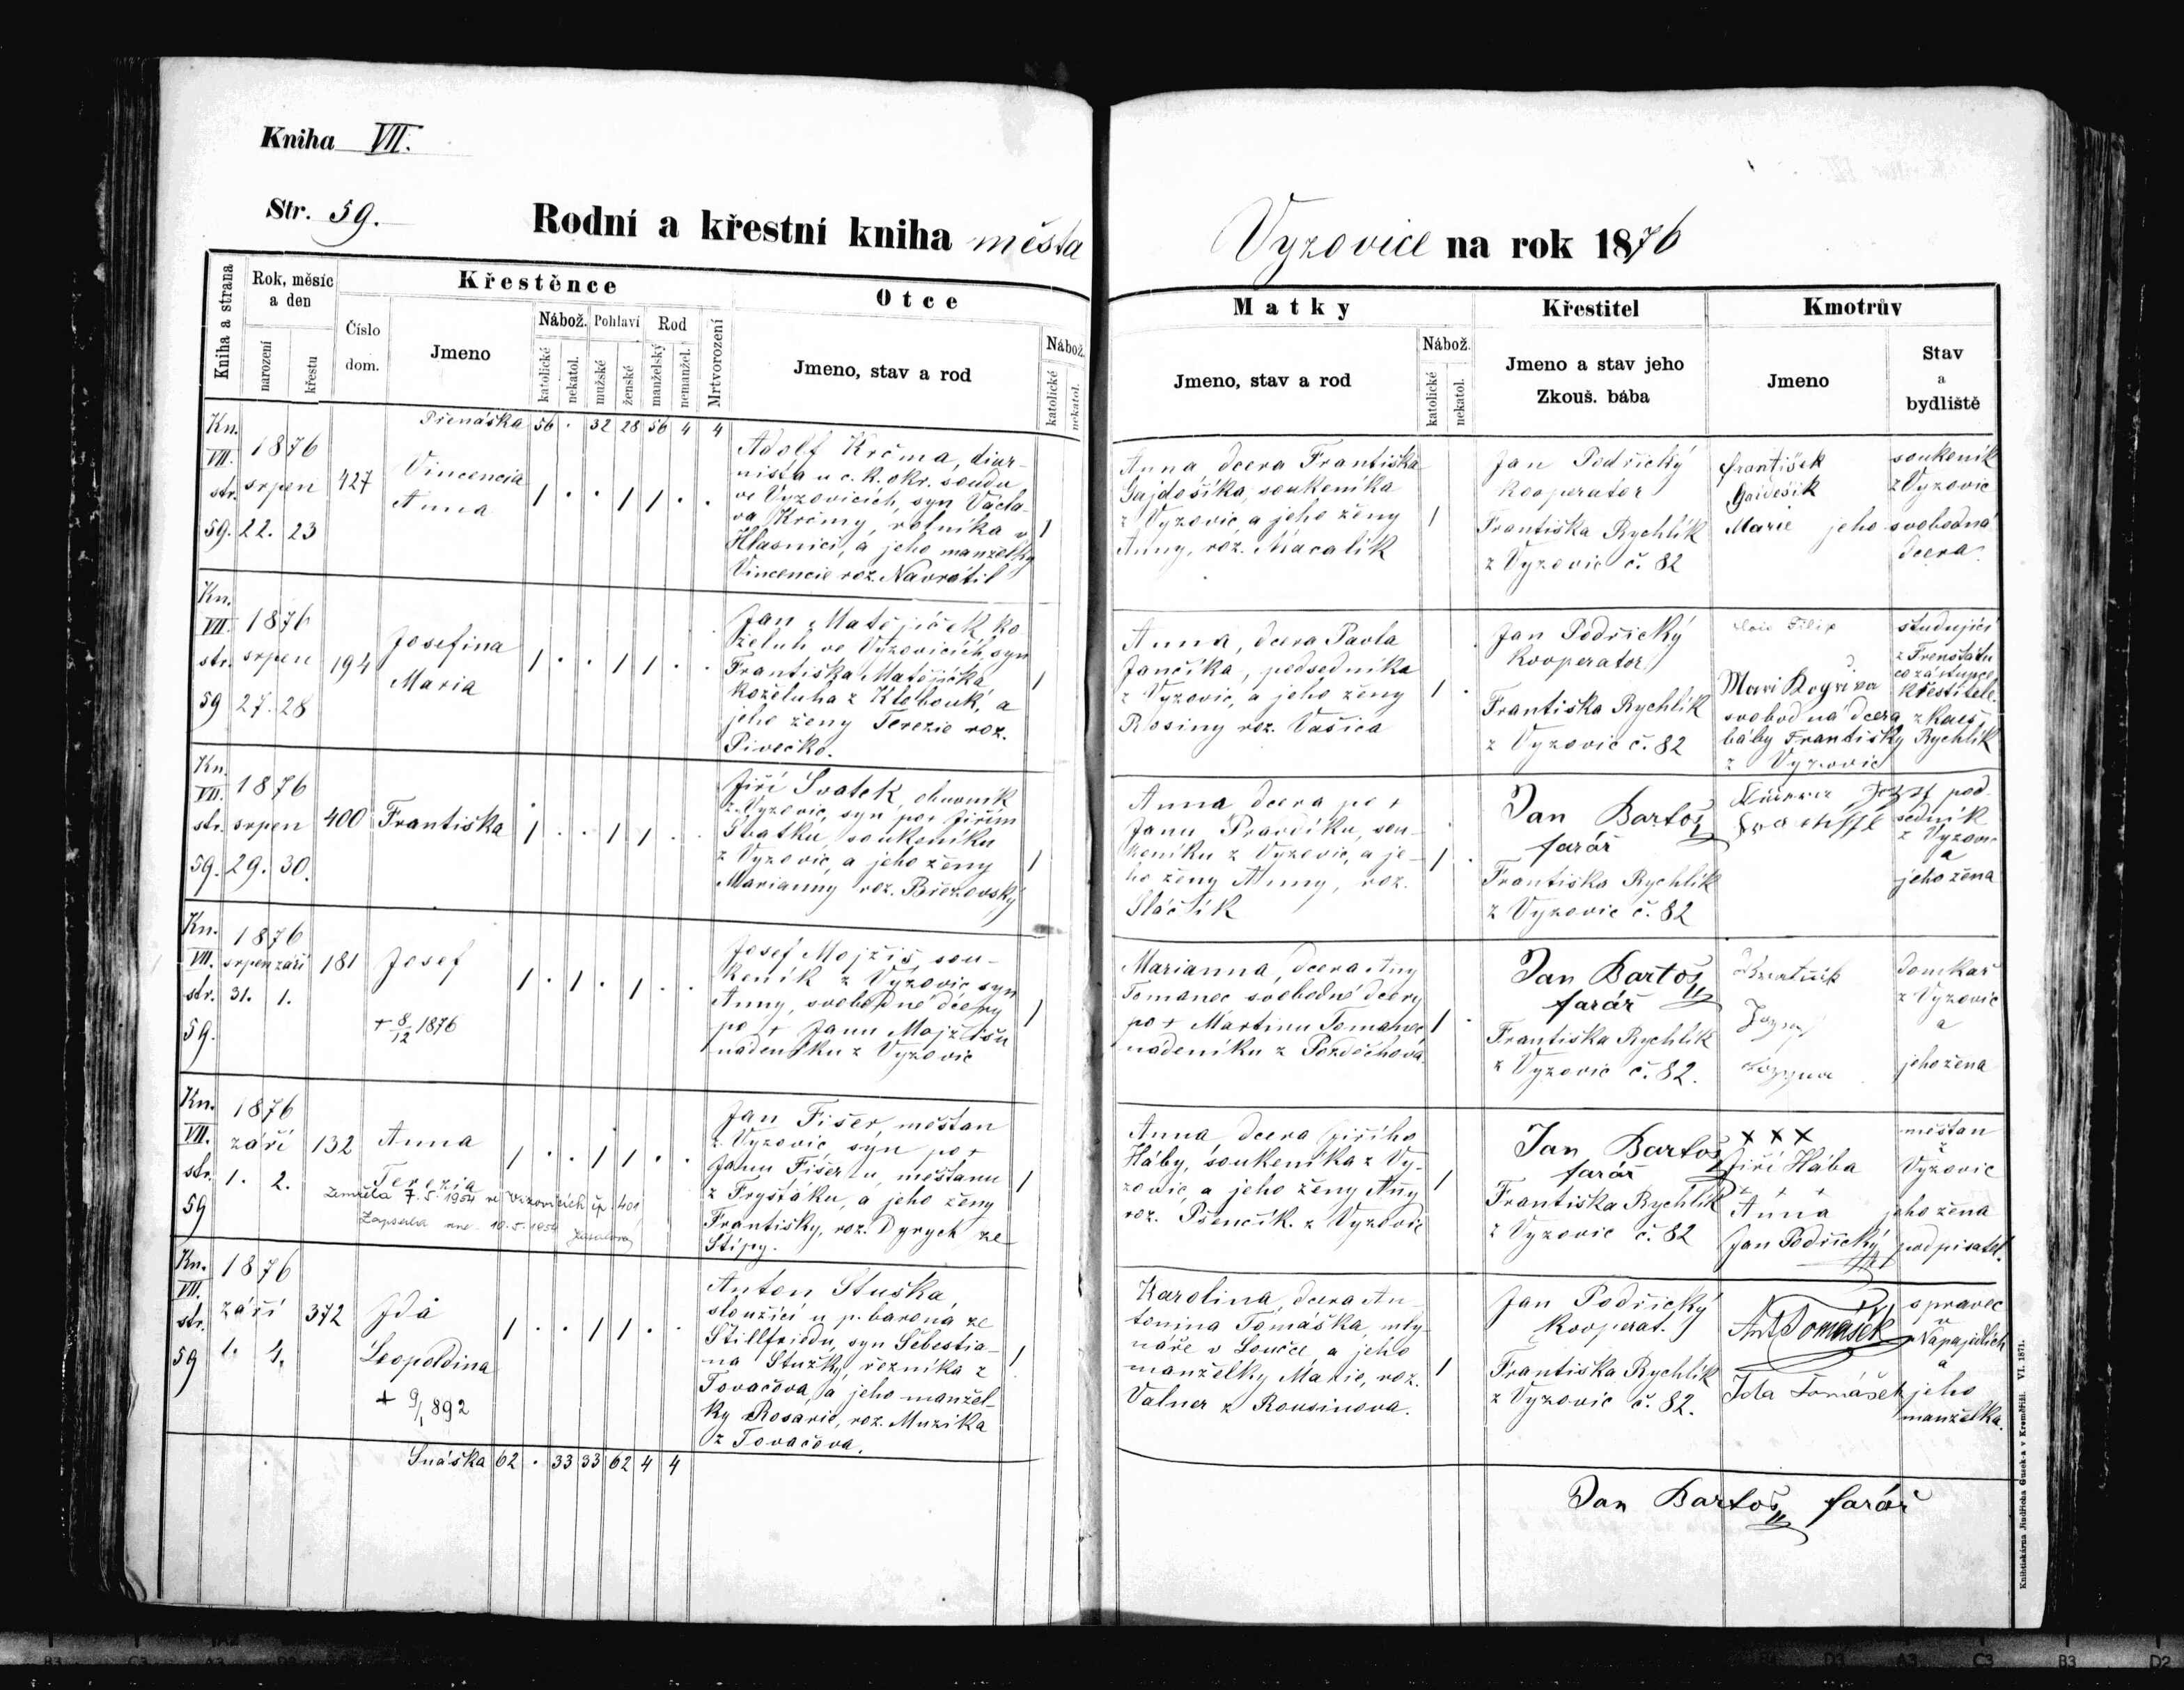 Kniha VII.
Str. 59.
Rodní a křestní kniha města
Vyzovice na rok 1876
Kniha a strana
Rok, měsíc
a den
narození
křestu
Křestěnce
Číslo
dom.
Jmeno
Nábož.
katolické
nekatol.
Pohlaví
mužské
ženské
Rod
manželský
nemanžel.
Mrtvorození
Otce
Jmeno, stav a rod
Nábož.
katolické
nekatol.
Matky
Jmeno, stav a rod
Nábož.
katolické
nekatol.
Křestitel
Jmeno a stav jeho
Zkouš. bába
Kmotrův
Jmeno
Stav
a
bydliště
Přenáška 56 . 32 28 56 4 4
Kn.
VII.
str.
59.
1876
srpen
22. 23
427
Vincencia
Anna
1 . . 1 1 . .
Adolf Krčma, diur-
nista u c. k. okr. soudu
ve Vyzovicích, syn Václa-
va Krčmy, rolníka v
Hlasnici, a jeho manželky
Vincencie roz. Navrátil
1
Anna, dcera Františka
Gajdošíka, soukeníka
z Vyzovic a jeho ženy
Anny, roz. Macalík
1
Jan Podřický
kooperator
Františka Rychlík
z Vyzovic č. 82
František
Gaidošik
Marie jeho svobodná
dcera
soukeník
z Vyzovic
Kn.
VII.
str.
59
1876
srpen
27. 28
194
Josefina
Maria
1 . . 1 1 . .
Jan Matějíček, ko-
želuh ve Vyzovicích, syn
Františka Matějíčka,
koželuha z Klobouk, a
jeho ženy Terezie roz.
Pivečka.
1
Anna, dcera Pavla
Jančíka, podsedníka
z Vyzovic, a jeho ženy
Rosiny roz. Vašica
1 .
Jan Podřický
Kooperator
Františka Rychlík
z Vyzovic č. 82
Filip
studující
z Frenštátu
co zástupce
křestitele.
svobodná dcera zkouš.
báby Františky Rychlík
z Vyzovic
Kn.
VII.
str.
59.
1876
srpen
29. 30.
400
Františka
1 . . 1 1 . .
Jiří Svatek, obuvník
z Vyzovic, syn po+ Jiřím
Svatku, soukeníku
z Vyzovic, a jeho ženy
Marianny roz. Březovský
1
Anna dcera po +
Janu Pravdíku, sou-
keníku z Vyzovic, a je-
ho ženy Anny, roz.
1 .
Jan Bartoš
farář
Františka Rychlík
z Vyzovic č. 82
pod-
sedník
z Vyzovic
a
jeho žena
Kn.
VII.
str.
59.
1876
srpen září
31. 1.
181
Josef
+ 8/12 1876
1 . 1 . 1 . .
Josef Mojžíš, sou-
keník z Vyzovic syn
Anny, svobodné dcery
po + Janu Mojžíšu
nadeníku z Vyzovic
1
Marianna, dcera Anny
Tomanec svobodné dcery
po + Martinu Tomanec
nadeníku z Pozděchova.
1 .
Jan Bartoš
farář
Františka Rychlík
z Vyzovic č. 82.
domkař
z Vyzovic
a
jeho žena
Kn.
VII.
str.
59
1876
září
1. 2.
132
Anna
Terezia
Zemřela 7. 5. 1954 ve Vizovicích čp. 401
Zapsala dne 10. 5. 1954
1 . . 1 1 . .
Jan Fišer, měštan
z Vyzovic, syn po +
Janu Fišeru, měštanu
z Fryštáku, a jeho ženy
Františky, roz. Dyrych ze
Štípy.
1
Anna, dcera Jiřího
Háby, soukeníka z Vy-
zovic, a jeho ženy Anny
roz. Pšenčík z Vyzovic
1
Jan Bartoš
farář
Františka Rychlík
z Vyzovic č. 82
x x x
Jiří Hába
+ + +
Anna jeho žena
Jan Podřický podpisatel.
měštan
z
Vyzovic
Kn.
VII.
str.
59
1876
září
1. 4.
372
Ida
Leopoldina
+ 9/1 892
1 . . 1 1 . .
Anton Stuška,
sloužící u p. barona ze
Stillfriedu, syn Sebestia-
na Stušky, řezníka z
Tovačova, a jeho manžel-
ky Rosarie, roz. Muzika
z Tovačova.
1
Karolina, dcera An-
tonina Tomáška, mly-
náře v Loučce, a jeho
manželky Marie, roz.
Valner z Rousinova.
1
Jan Podřický
Kooperat.
Františka Rychlík
z Vyzovic č. 82.
Ant Tomášek
Ida Tomášek
správec
v
Napajedlích
a
jeho
manželka.
Snáška 62 . 33 33 62 4 4
Jan Bartoš farář
Knihtiskárna Jindřicha Gusek-a v Kroměříži. VI. 1871.